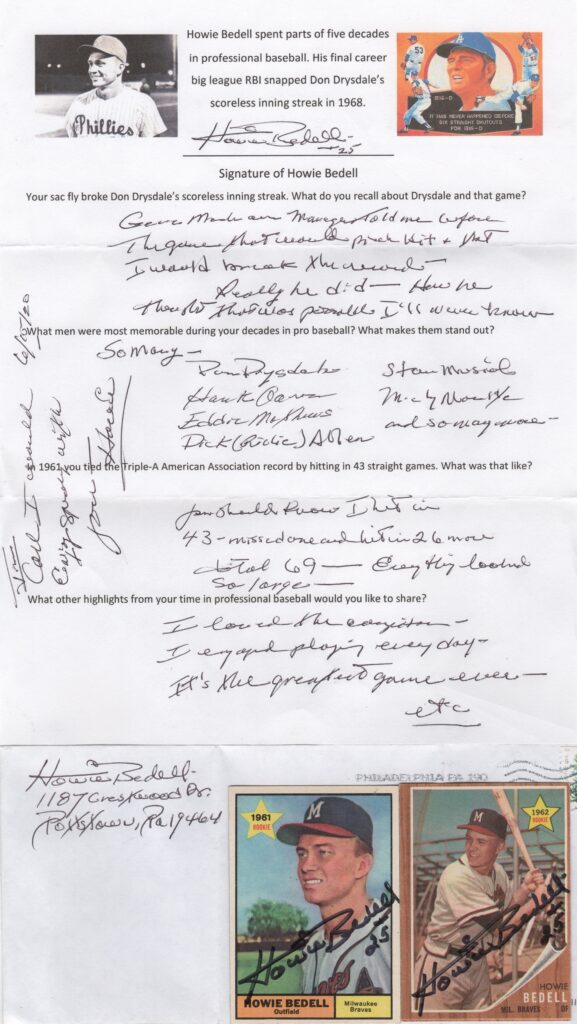 Howie Bedell spent parts of five decades
in professional baseball. His final career
big league RBI snapped Don Drysdale's
scoreless inning streak in 1968.
Phillies
53
1916-D
IT HAS NEVER HAPPENED BEFORE
SIX STRAIGHT SHUTOUTS
FOR 1916-D
Howie Bedell
25
Signature of Howie Bedell
Your sac fly broke Don Drysdale's scoreless inning streak. What do you recall about Drysdale and that game?
Gene Mauch our Manager told me before
The game that I would pinch hit & that
I would break the record —
Really he did — How he
thought that was possible I'll never know
What men were most memorable during your decades in pro baseball? What makes them stand out?
So Many —
Don Drysdale Stan Musial
Hank Aaron Micky Mantle
Eddie Mathews and so many more —
Dick (Richie) Allen
In 1961 you tied the Triple-A American Association record by hitting in 43 straight games. What was that like?
you should know I hit in
43 - missed one and hit in 26 more
total 69 — Everything looked
So large —
What other highlights from your time in professional baseball would you like to share?
I loved the
I enjoyed playing every day —
It's the greatest game ever —
etc
6/12/20
Carl I
Enjoy
your
Howie Bedell
1187 Crestwood Dr.
Pottstown, Pa 19464
PHILADELPHIA PA 190
1961
ROOKIE
M
Howie Bedell
25
HOWIE BEDELL
Outfield
Milwaukee
Braves
1962
ROOKIE
M
Howie Bedell
25
HOWIE
BEDELL
MIL. BRAVES OF